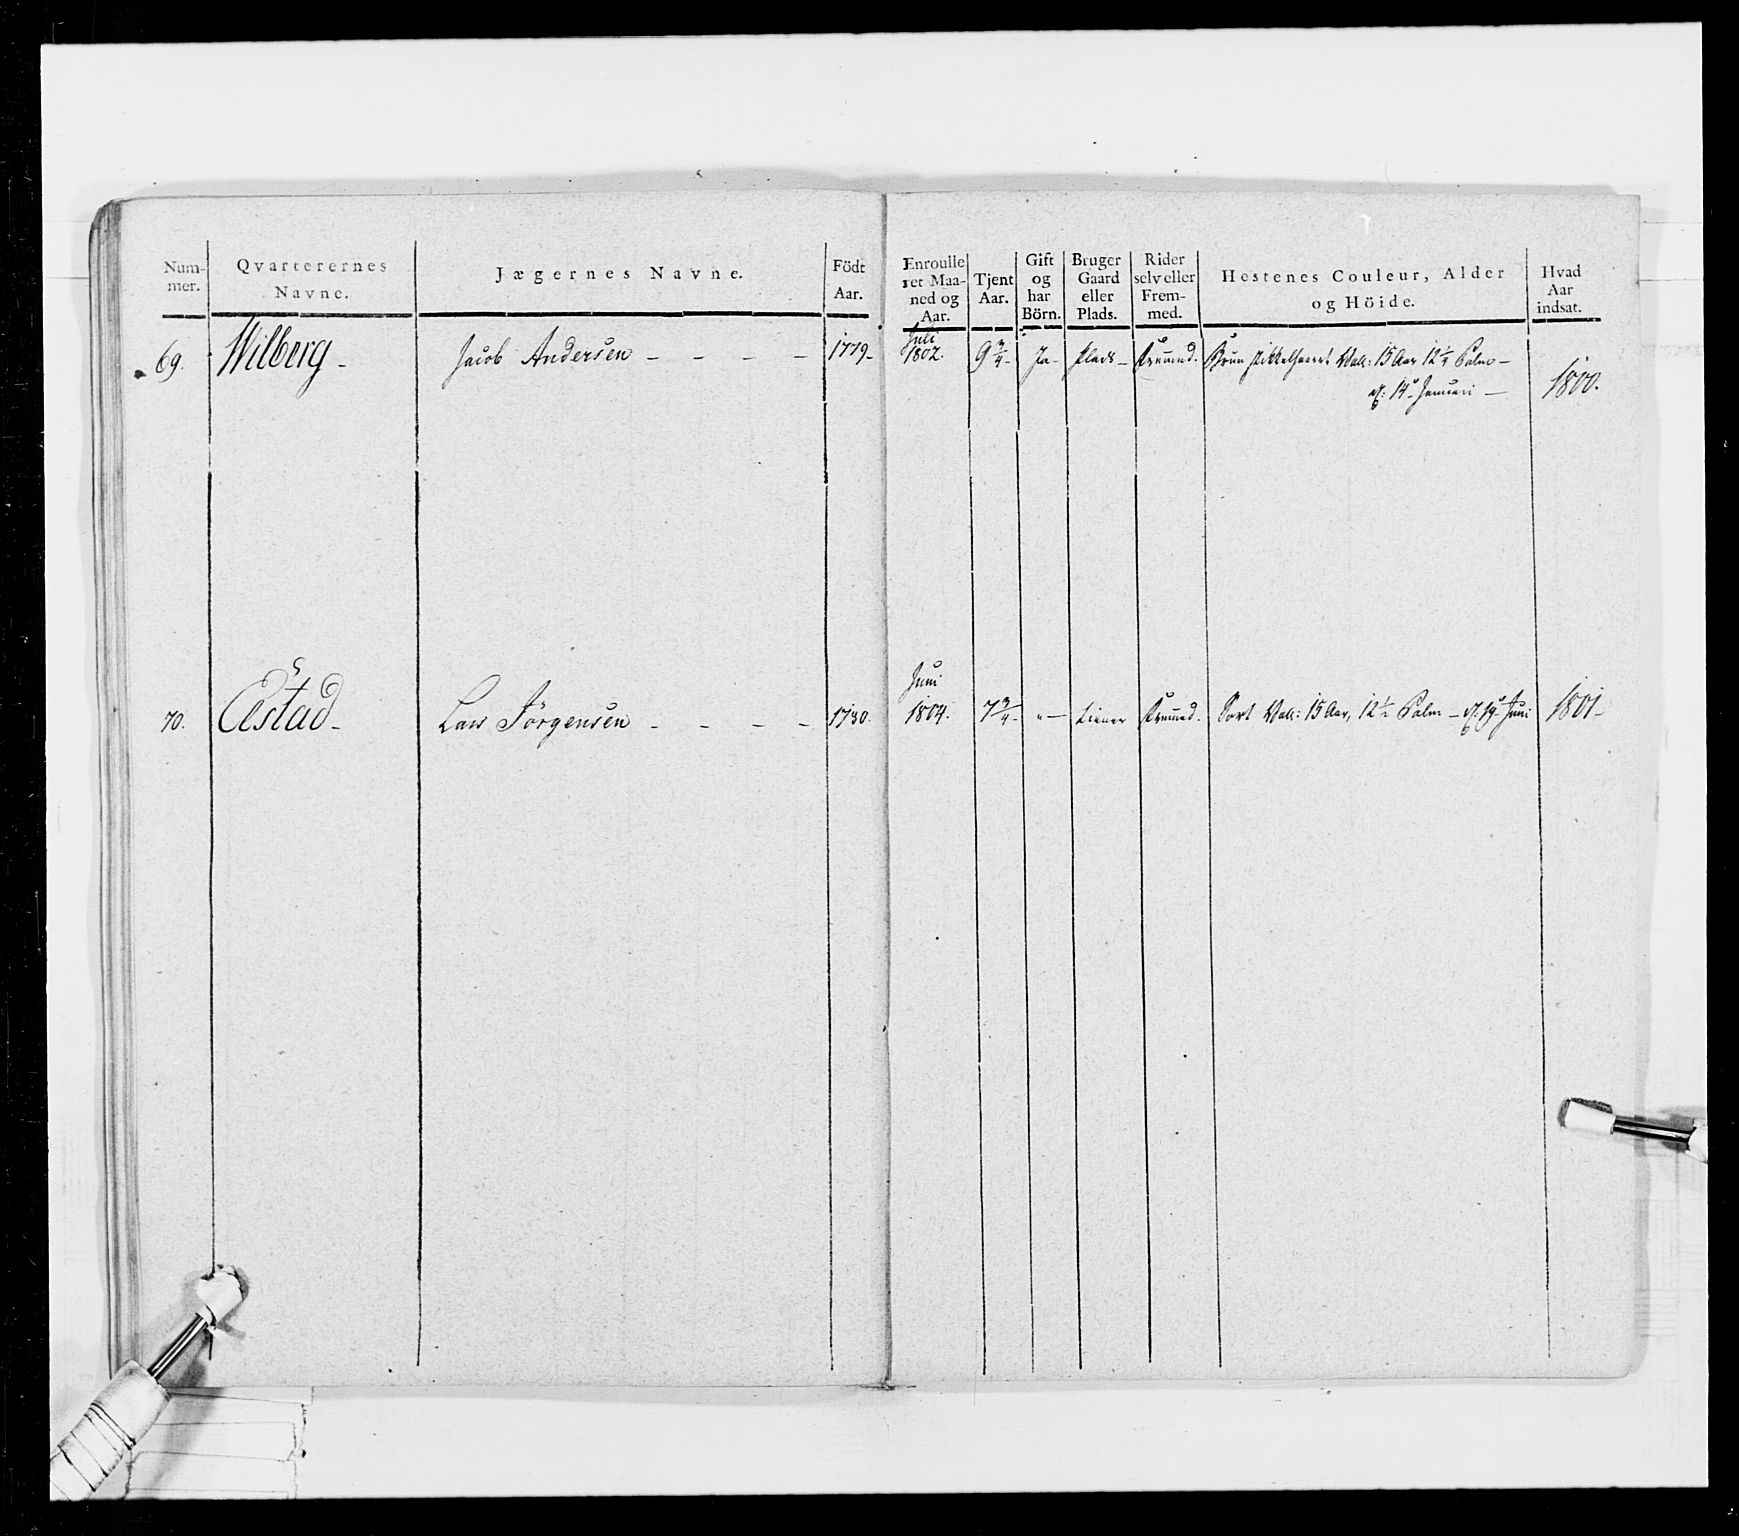 Num-
mer.
Qvarterernes
Navne.
Jægernes Navne.
Födt
Aar.
Enroulle
ret Maa-
ned og
Aar.
Tjent
Aar.
Gift
og
har
Börn.
Bruger
Gaard
eller
Plads.
Rider
selv eller
Frem-
med.
Hestenes Couleur, Alder
og Höide.
Hvad
Aar
indsat.
Juli
69. Wilberg - Jacob Andersen - - - - 1779- 1802. 9 3/4- Ja- Plads - Fremmed. Brun stikkelhaaret Vall: 15 Aar 12 1/4 Palm -
14 Januari - 1800.
Juni
70. Æstad - Lars Jörgensen - - - - 1780. 1804. 7 3/4- "- Tiener Fremmed. Sort Vall: 15 Aar, 12 1/2 Palm - 19 Juni 1801-